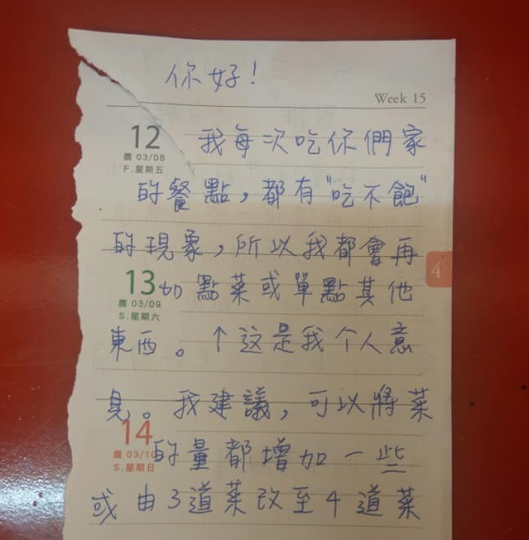 你好！
Week 15
12
農 03/08
F.星期五
我每次吃你們家
的餐點，都有"吃不飽"
的現象，所以我都會再
4
13
農 03/09
S.星期六
加點菜或單點其他
東西。↑這是我个人意
見。我建議，可以將菜
14
農 03/10
S.星期日
的量都增加一些
或由3道菜改至4道菜